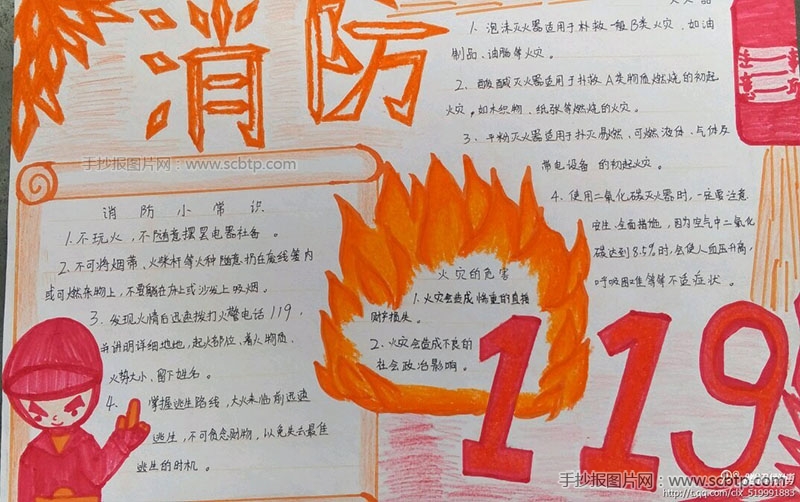 消防
灭火器
1. 泡沫灭火器适用于扑救一般B类火灾，如油
制品、油脂等火灾。
2. 酸碱灭火器适用于扑救A类物质燃烧的初起
火灾。如木织物、纸张等燃烧的火灾。
3. 干粉灭火器适用于扑灭易燃、可燃液体、气体及
带电设备的初起火灾。
4. 使用二氧化碳灭火器时，一定要注意
安全措施，因为空气中二氧化
碳达到8.5%时，会使人血压升高、
呼吸困难等等不适症状。
手抄报图片网：www.scbtp.com
消防小常识
1. 不玩火，不随意摆弄电器设备。
2. 不可将烟蒂、火柴杆等火种随意扔在废纸篓内
或可燃杂物上，不要躺在床上或沙发上吸烟。
3. 发现火情后迅速拨打火警电话119，
并讲明详细地址，起火部位、着火物质、
火势大小、留下姓名。
4. 掌握逃生路线，大火来临前迅速
逃生，不可贪念财物，以免失去最佳
逃生的时机。
火灾的危害
1. 火灾会造成惨重的直接
财产损失。
2. 火灾会造成不良的
社会政治影响。
119
手抄报图片网：www.scbtp.com
http://t.qq.com/clx_519991883